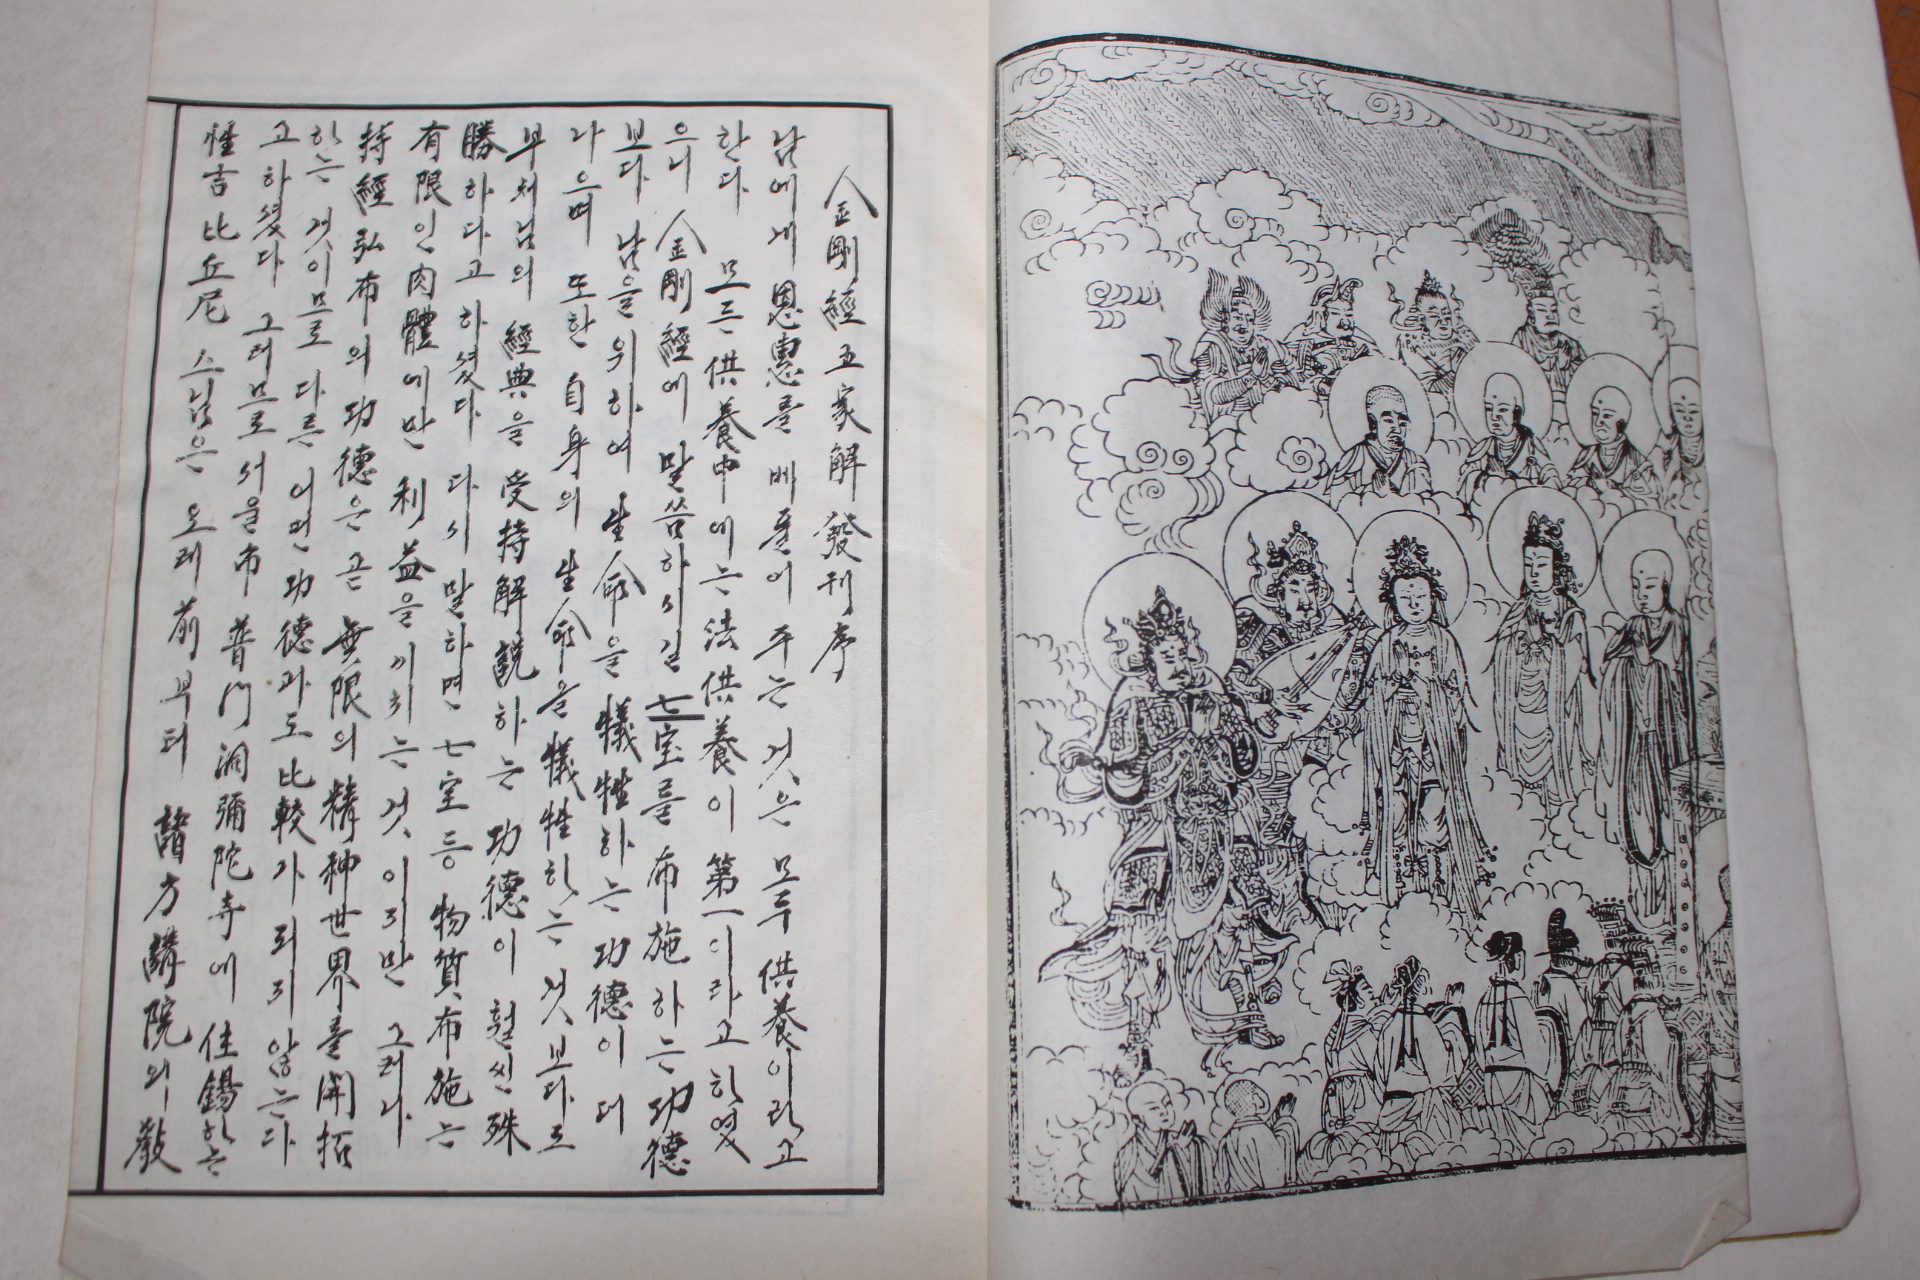 金剛經五家解發刊序
남에게 恩惠를 베풀어 주는 것은 모두 供養이라고
한다 모든 供養中에는 法供養이 第一이라고 하였
으니 金剛經에 말씀하시길 七宝를 布施하는 功德
보다 남을 위하여 生命을 犧牲하는 功德이 더
나으며 또한 自身의 生命을 犧牲하는 것보다도
부처님의 經典을 受持解說하는 功德이 훨씬 殊
勝하다고 하셨다 다시 말하면 七宝等 物質布施는
有限인 肉體에만 利益을 끼치는 것이지만 그러나
持經弘布의 功德은 곧 無限의 精神世界를 開拓
하는 것이므로 다른 어떤 功德과도 比較가 되지 않는다
고 하셨다 그러므로 서울市 普門洞 彌陀寺에 住錫하는
性吉 比丘尼 스님은 오래前부터 諸方講院의 敎